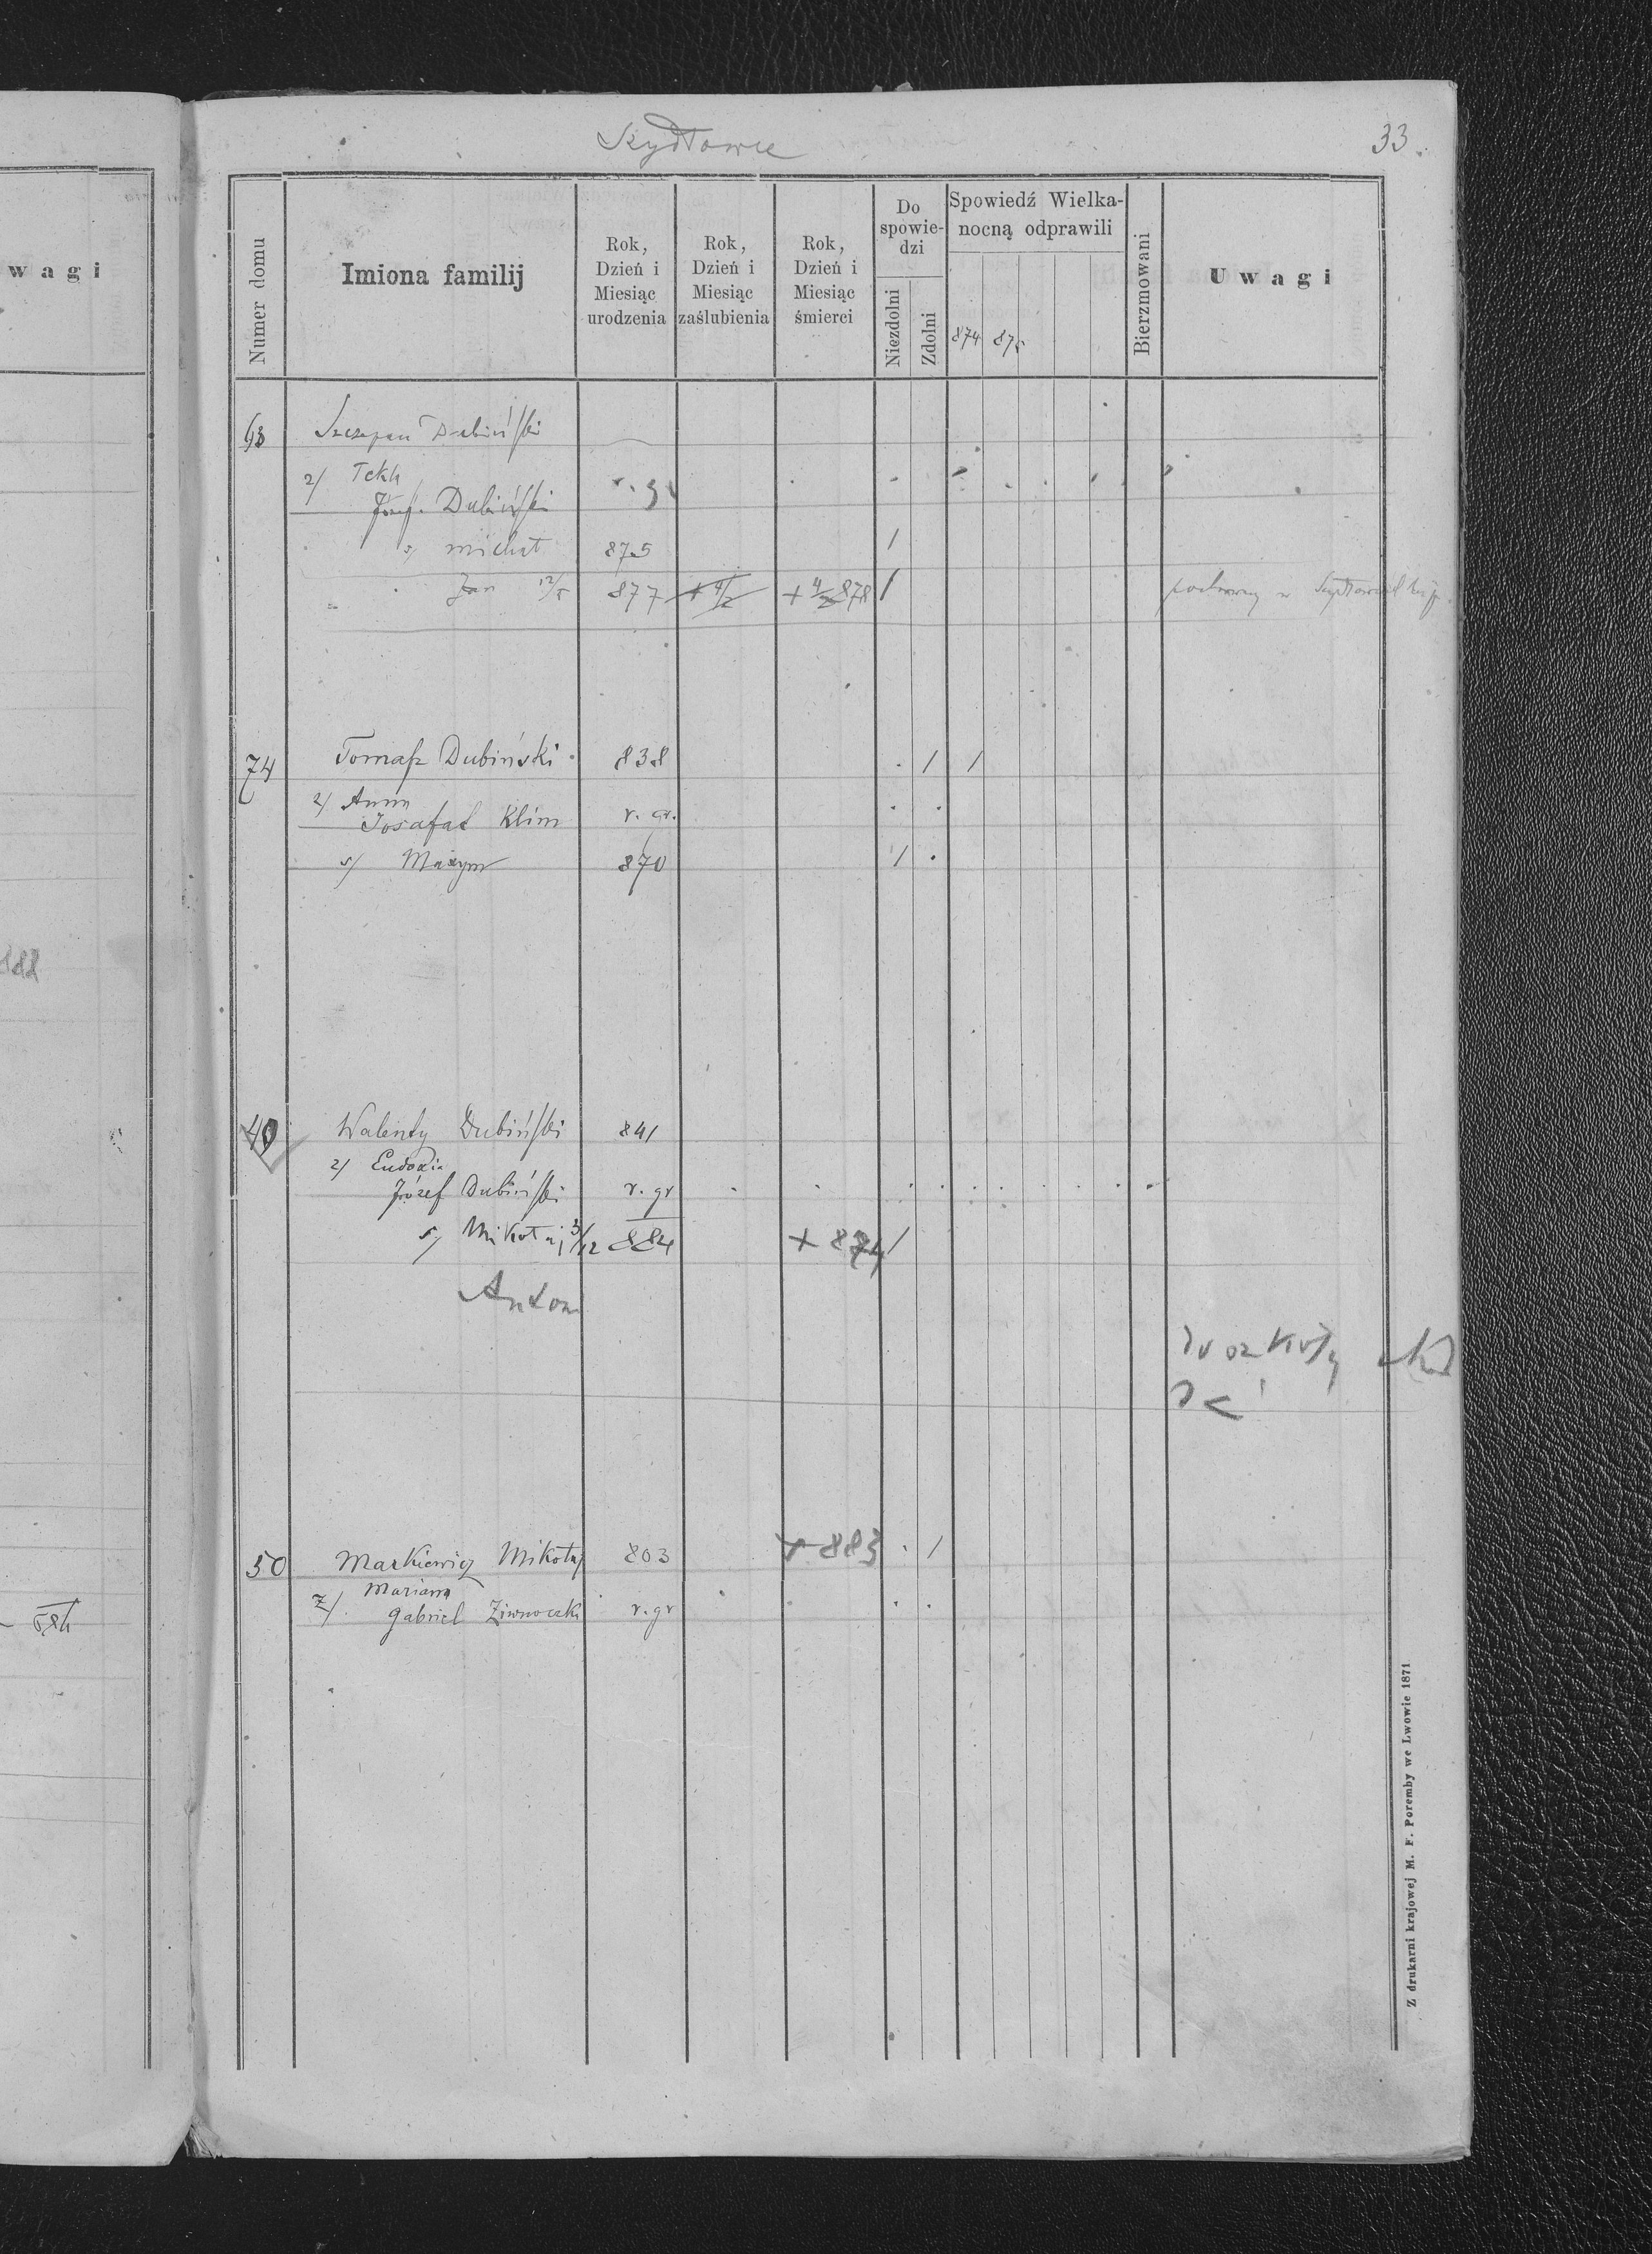 Szydłowce
33.
wagi
Numer domu
Imiona familij
Rok, Dzień i Miesiąc urodzenia
Rok, Dzień i Miesiąc zaślubienia
Rok, Dzień i Miesiąc śmierci
Do spowiedzi
Niezdolni
Zdolni
Spowiedź Wielka-
nocną odprawili
874 875
Bierzmowani
Uwagi
Szczepan Dubiński
2/ Tekla
Józef Dubiński
s/ Michał 875 /
Jan 12/5 877 + 4/2 + 4/2 878 /
74 Tomasz Dubiński 838 / /
2/ Anna
Josafat Klim r. gr.
s/ Maxym 870 /
49 Walenty Dubiński 841
2/ Eudoxia
Józef Dubiński r. gr
s/ Mikołaj 3/12 884 + 874 /
Anton
50 Markiewicz Mikołaj 803 + 883 /
2/ Marianna
Gabriel r. gr
Z drukarni krajowej M. F. Poremby we Lwowie 1871